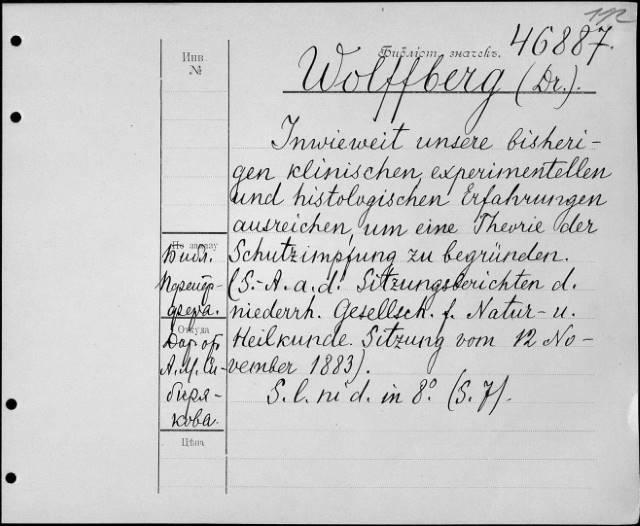 Инв.
№
Библіот. значекъ. 46887.
Wolffberg (Dr.).
Inwieweit unsere bisheri-
gen klinischen, experimentellen
und histologischen Erfahrungen
ausreichen, um eine Theorie der
Schutzimpfung zu begründen.
(S.-A. a. d. Sitzungsberichten d.
niederrh. Gesellsch. f. Natur- u.
Heilkunde. Sitzung vom 12 No-
vember 1883).
S. l. ni d. in 8º. (S. 7).
По заказу
Библ.
Откуда
Дар. от
А. М. Си-
биря-
кова.
Цѣна